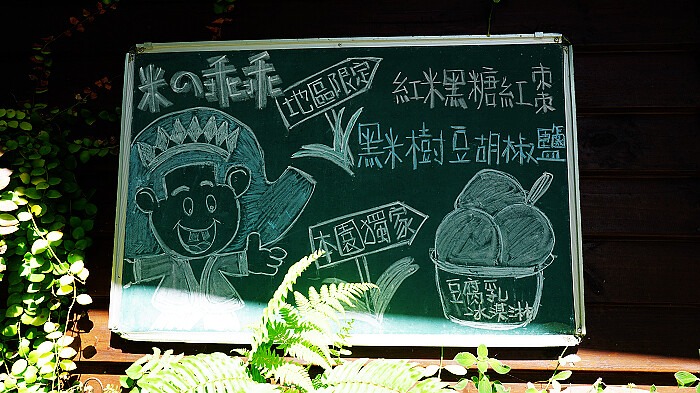 米の乖乖
地區限定
紅米黑糖紅棗
黑米樹豆胡椒鹽
本園獨家
豆腐乳
冰淇淋